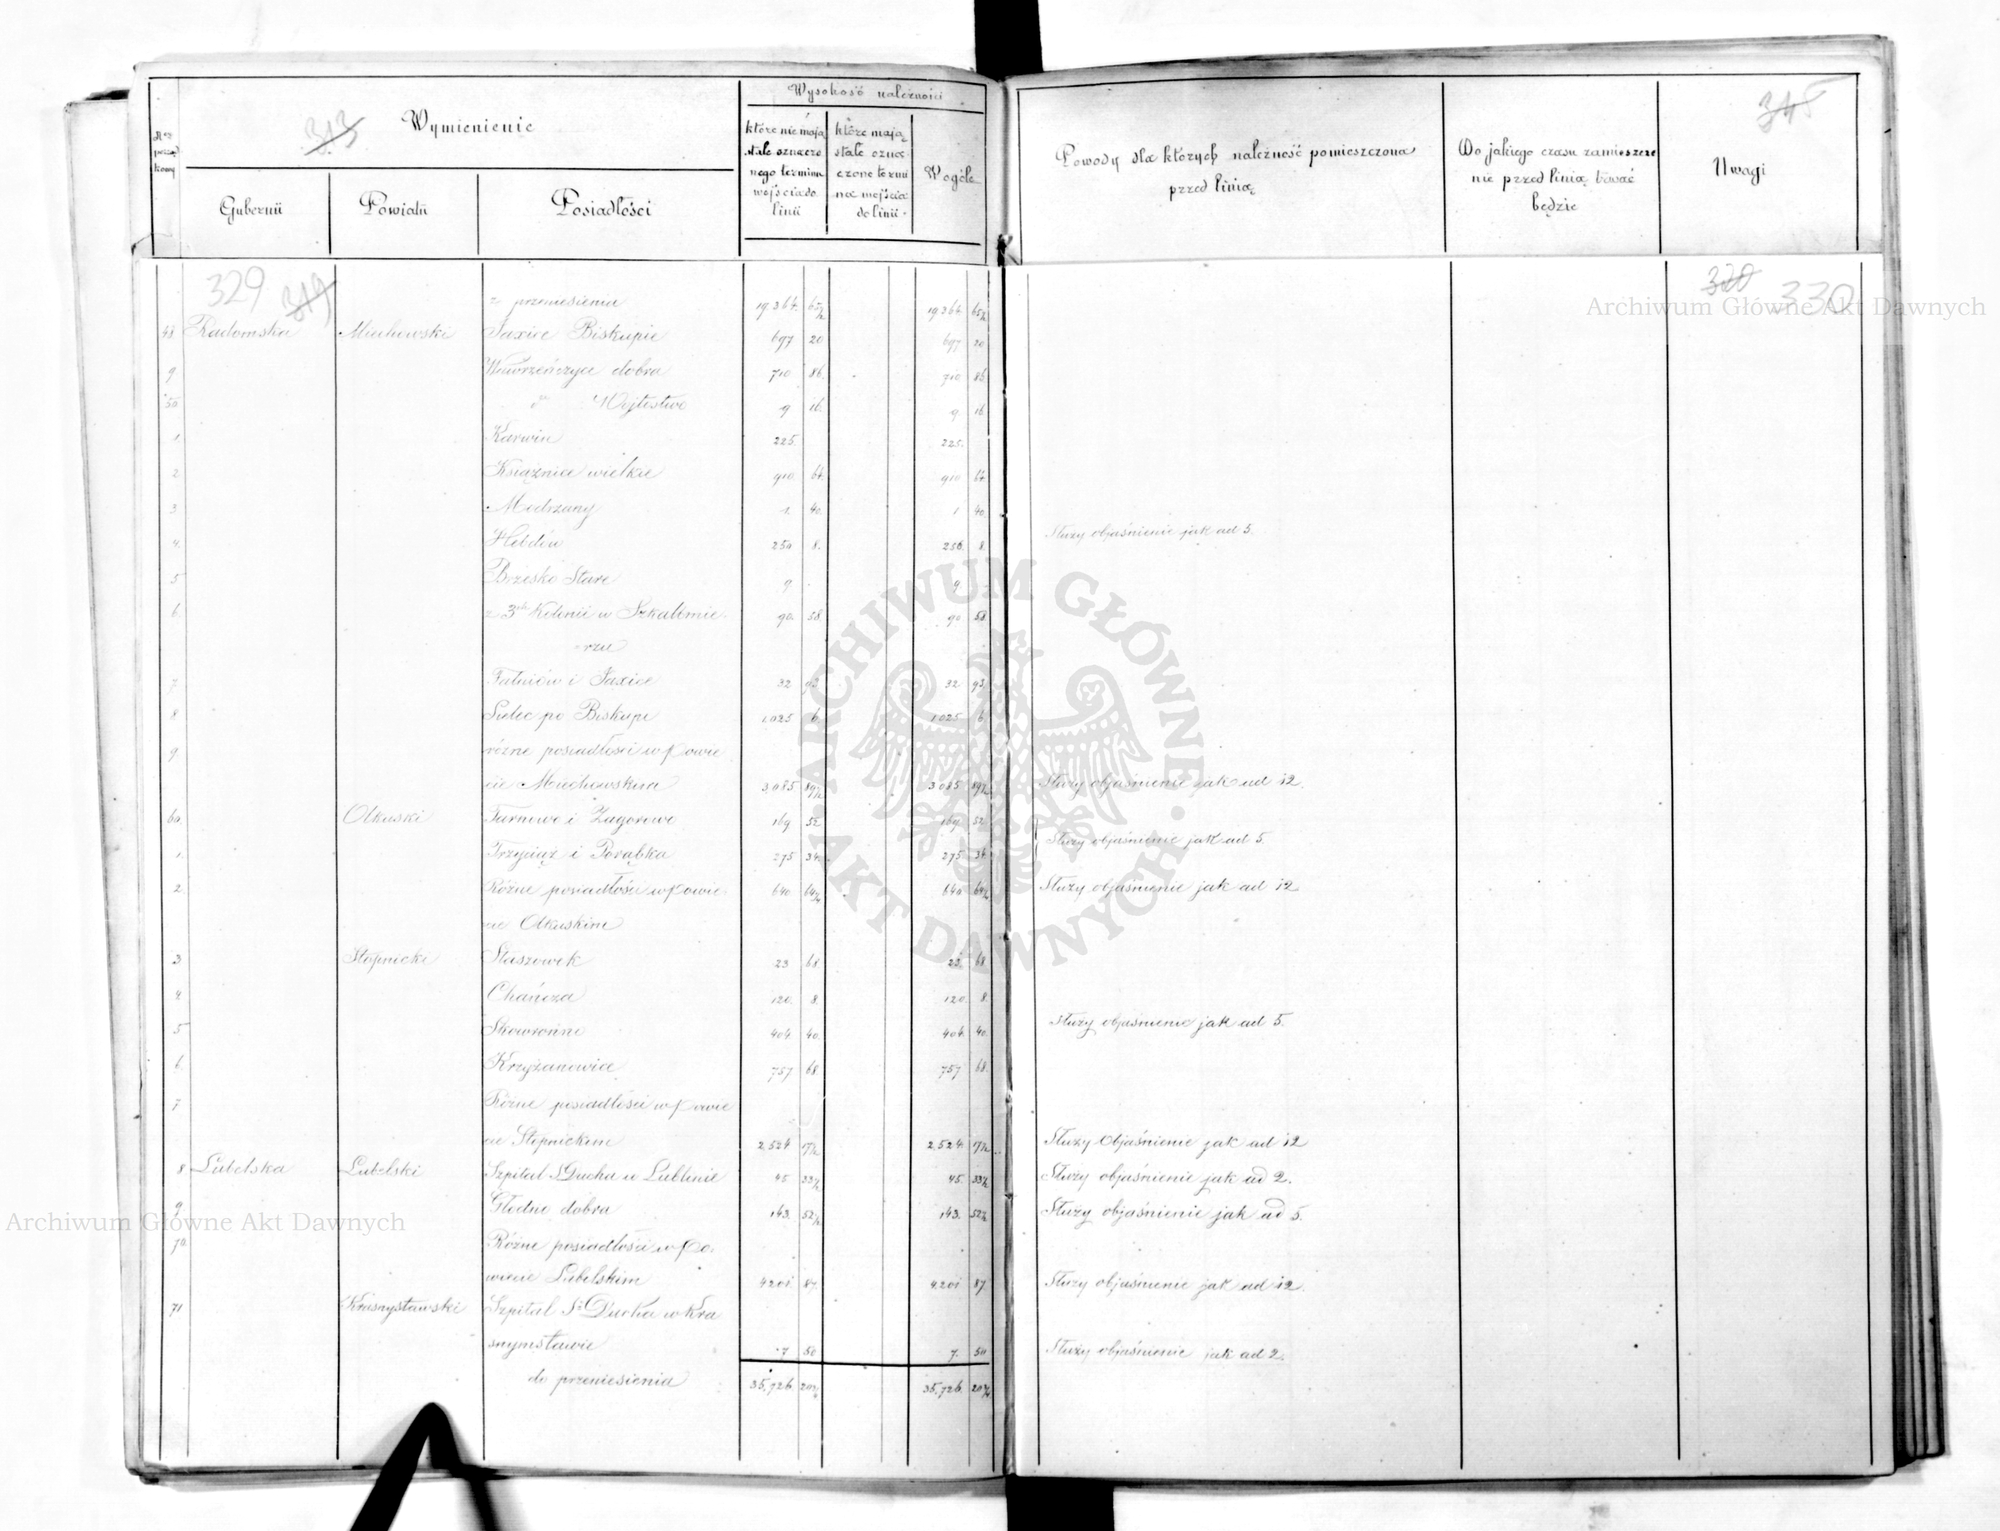 Wysokość należności
345
Wymienienie
313
Nr porządkowy
które nie mają stale oznaczonego terminu wejścia do linii
które mają stale oznaczone termina wejścia do linii
Wogóle
Gubernii
Powiatu
Posiadłości
Powody dla których należność pomieszczona przed linią
Do jakiego czasu zamieszczenie przed linią trwać będzie
Uwagi
329 319
320 330
z przeniesienia 19364. 65½ 19364. 65½
48 Radomska Miechowski Jaxice Biskupie 697 20 697 20
9 Wawrzeńczyce dobra 710 86. 710 86
50 Wójtostwo 9 16. 9 16
1 Karwin 225. 225.
2 Książnice wielkie 910 64. 910 64
3 Modrzany 1. 40. 1 40
4. Hebdów 8. 256. 8.
Służy objaśnienie jak ad 5.
5 Brzesko Stare 9 9
6. z 3ch Kolonii w Szkalbmie-
rzu 90. 58. 90. 58
7 Falniów i Jaxice 32 93 32 93
8 Sielec po Biskupi 1,025 6. 1,025 6
9 różne posiadłości w powie
cie Miechowskim 3,085 89½ 3,085 89½
Służy objaśnienie jak ad 12.
60 Olkuski Zagorowo 169 52 169 52
1. Trzyciąż i Porąbka 275 34. 275 34
Służy objaśnienie jak ad 5.
2. Różne posiadłości w powie-
cie Olkuskim 640 640
Służy objaśnienie jak ad 12
3 Stopnicki Staszowek 23 68 23. 68
4 Chańcza 120. 8. 120. 8.
5 Skowronne 404. 40. 404. 40
Służy objaśnienie jak ad 5.
6. Krzyżanowice 757 68 757 68.
7 Różne posiadłości w powie
cie Stopnickim 2,524 17½ 2,524. 17½
Służy Objaśnienie jak ad 12
8 Lubelska Lubelski Szpital S Ducha w Lublinie 45 33½ 45. 33½
Służy objaśnienie jak ad 2.
9 dobra 143. 52½ 143. 52½
Służy objaśnienie jak ad 5.
70. Różne posiadłości w po-
wiecie Lubelskim 4201 87. 4201 87
Służy objaśnienie jak ad 12.
71 Krasnystawski Szpital St Ducha w Kra
snymstawie 7 50 7. 50
Służy objaśnienie jak ad 2.
do przeniesienia 35,726. 20¾ 35,726. 20¾
Archiwum Główne Akt Dawnych
Archiwum Główne Akt Dawnych
ARCHIWUM GŁÓWNE AKT DAWNYCH